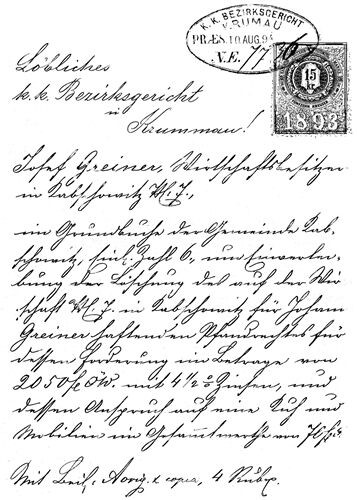 K. K. BEZIRKSGERICHT
KRUMAU
PRÆS. 10 AUG. 94
N.E. 77
15
kr
1893
Löbliches
k. k. Bezirksgericht
in
Krummau!
Josef Greiner, Wirtschaftsbesitzer
in Kabschowitz N. 7.,
im Grundbuche der Gemeinde Kab-
schowitz, Einl. Zahl 6., um Einverlei-
bung der Löschung des auf der Wir-
schaft N. 7. in Kabschowitz für Johann
Greiner haftenden Pfandrechtes für
dessen Forderung im Betrage von
2050 f ö.W. mit 4 1/2 % Zinsen, und
dessen Anspruch auf eine Kuh und
Mobilien im Gesammtwerthe von 70 f
Mit Beil. Aorig. & copia, 4 Rubr.